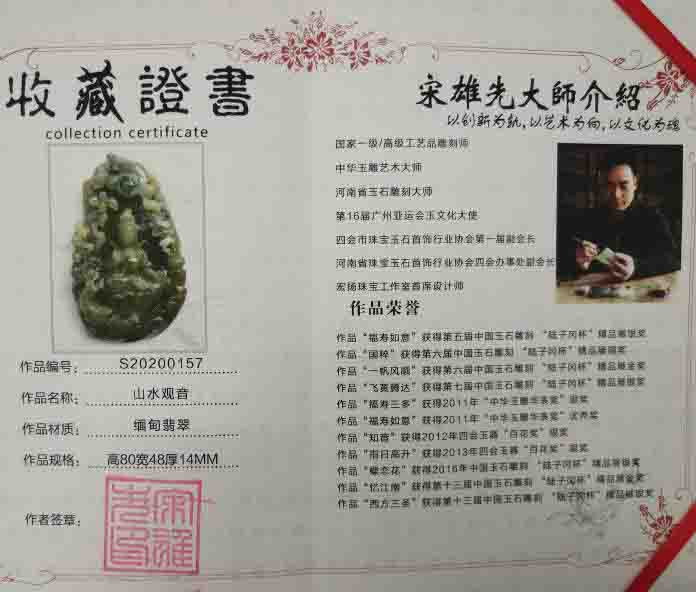 收藏證書
collection certificate
作品编号: S20200157
作品名称: 山水观音
作品材质: 缅甸翡翠
作品规格: 高80宽48厚14MM
作者签章:
宋雄先大師介紹
以创新为轨,以艺术为向,以文化为魂
国家一级/高级工艺品雕刻师
中华玉雕艺术大师
河南省玉石雕刻大师
第16届广州亚运会玉文化大使
四会市珠宝玉石首饰行业协会第一届副会长
河南省珠宝玉石首饰行业协会四会办事处副会长
宏扬珠宝工作室首席设计师
作品荣誉
作品“福寿如意”获得第五届中国玉石雕刻“陆子冈杯”精品展银奖
作品“国粹”获得第六届中国玉石雕刻“陆子冈杯”精品展银奖
作品“一帆风顺”获得第六届中国玉石雕刻“陆子冈杯”精品展金奖
作品“飞英腾达”获得第七届中国玉石雕刻“陆子冈杯”精品展铜奖
作品“福寿三多”获得2011年“中华玉雕华表奖”银奖
作品“福寿如意”获得2011年“中华玉雕华表奖”优秀奖
作品“知音”获得2012年四会玉器“百花奖”银奖
作品“指日高升”获得2013年四会玉器“百花奖”银奖
作品“蝶恋花”获得2016年中国玉石雕刻“陆子冈杯”精品展银奖
作品“忆江南”获得第十三届中国玉石雕刻“陆子冈杯”精品展金奖
作品“西方三圣”获得第十三届中国玉石雕刻“陆子冈杯”精品展银奖